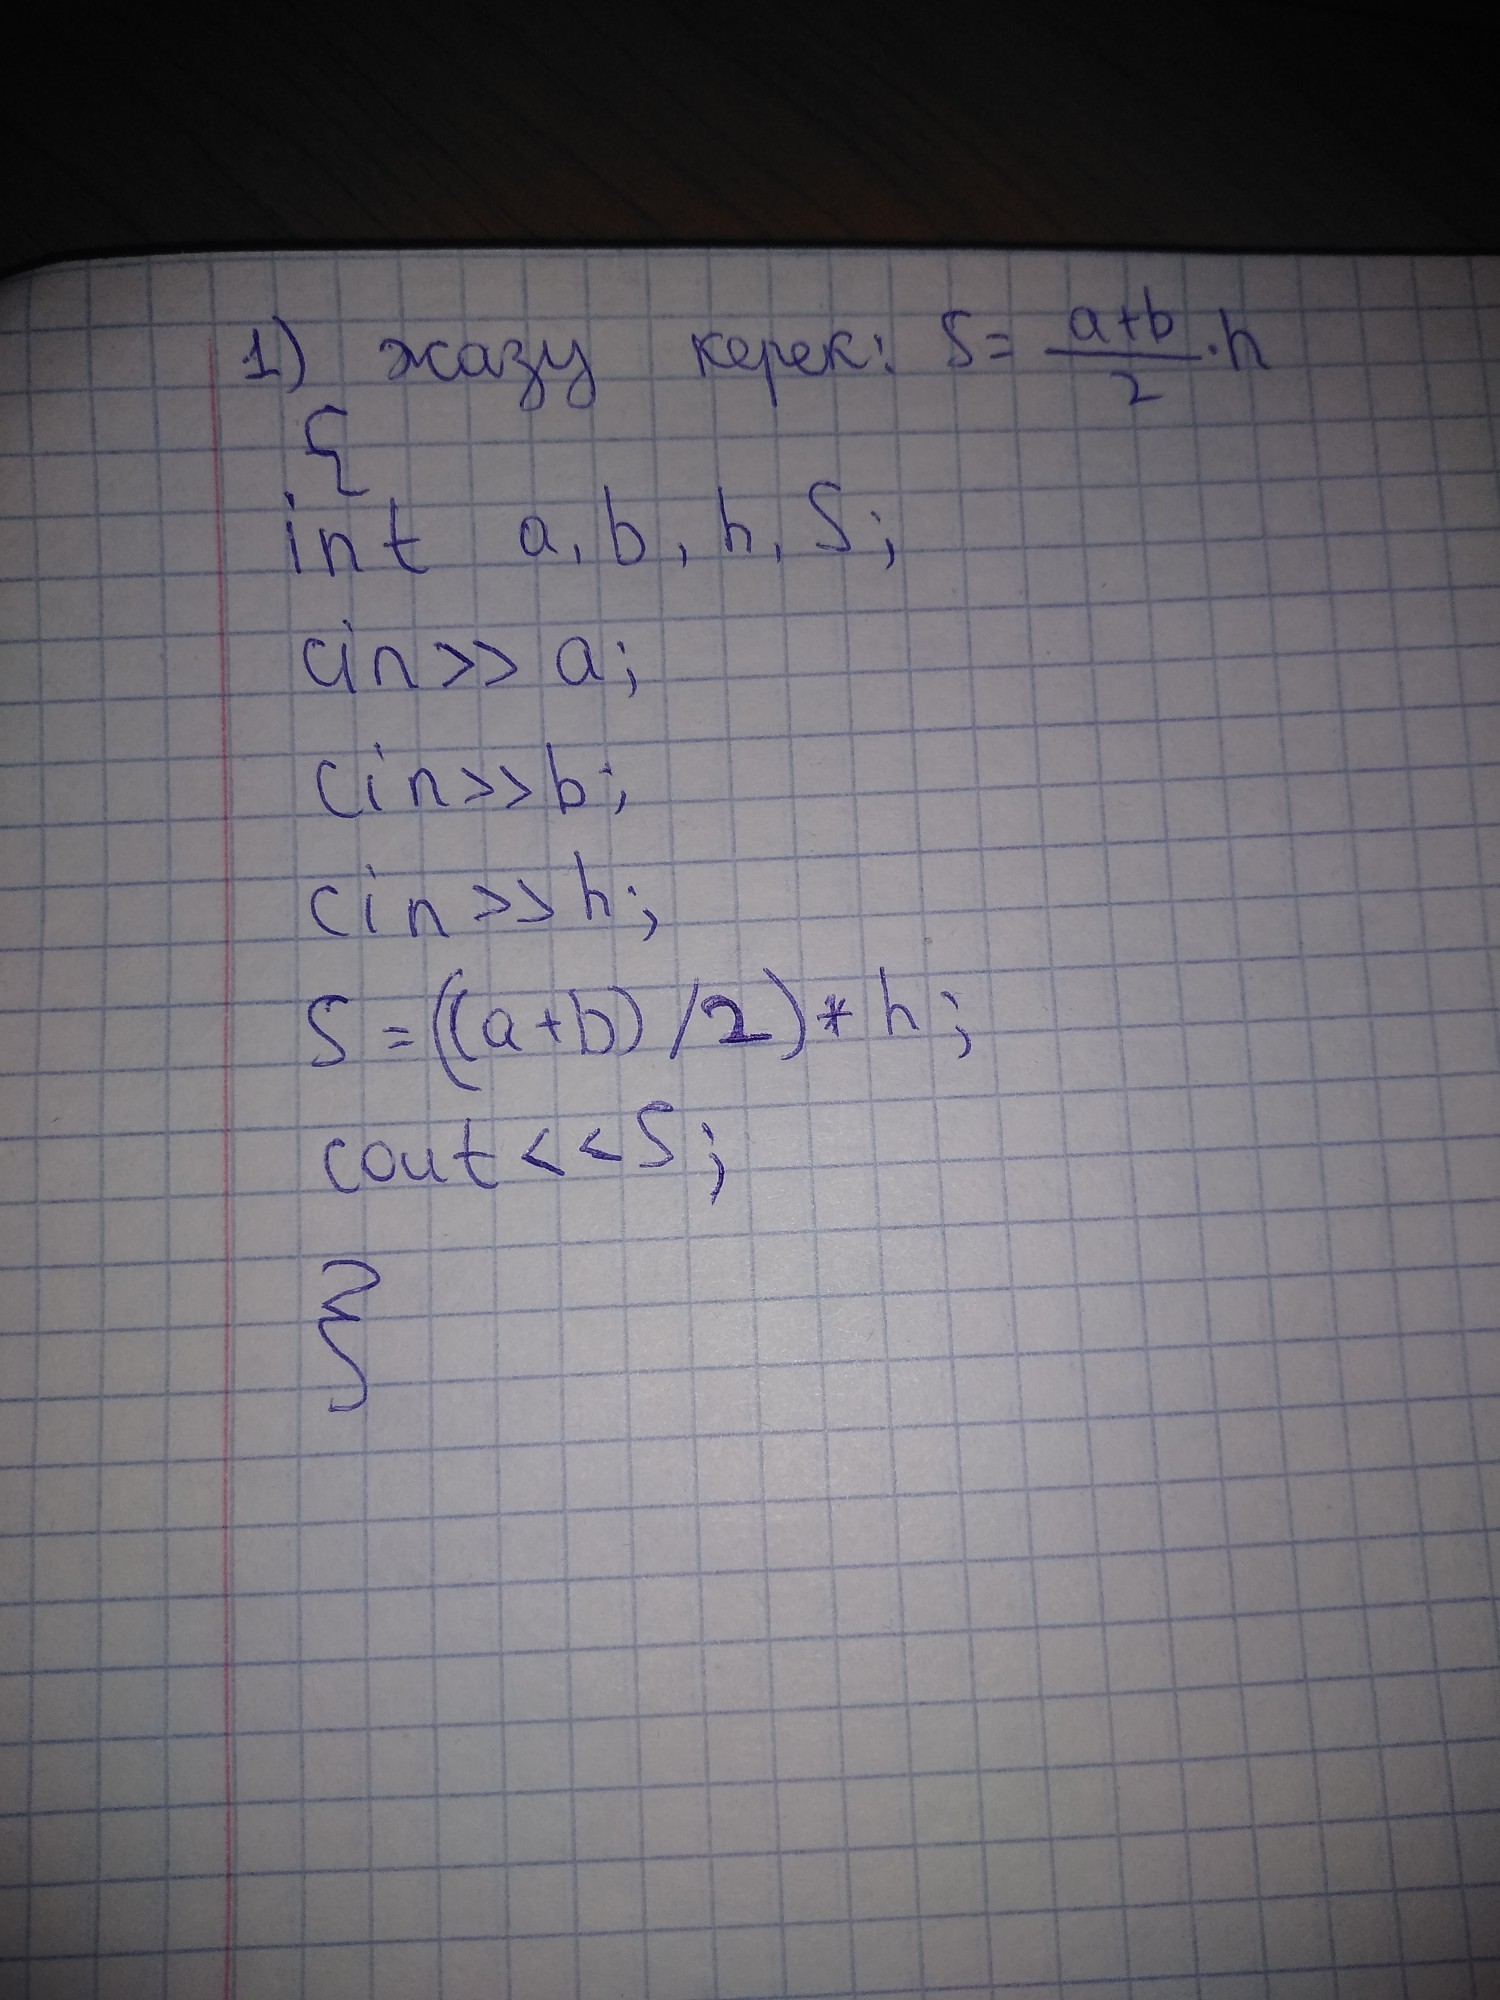 1) жазу керек: S = (a+b)/2 · h
{
int a, b, h, S;
cin>> a;
cin>>b;
cin>>h;
S=((a+b)/2)*h;
cout<<S;
}